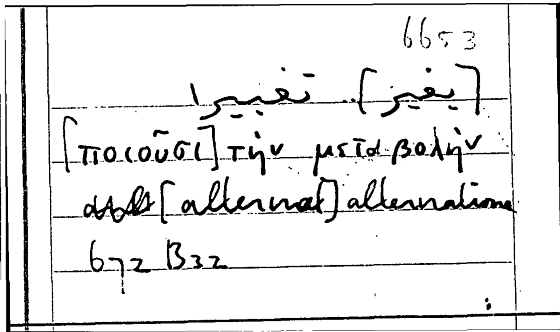 6653
[يغير] .. تغييرا
[ποιοῦσι] τὴν μεταβολὴν
[alternat] alternationem
672 B32